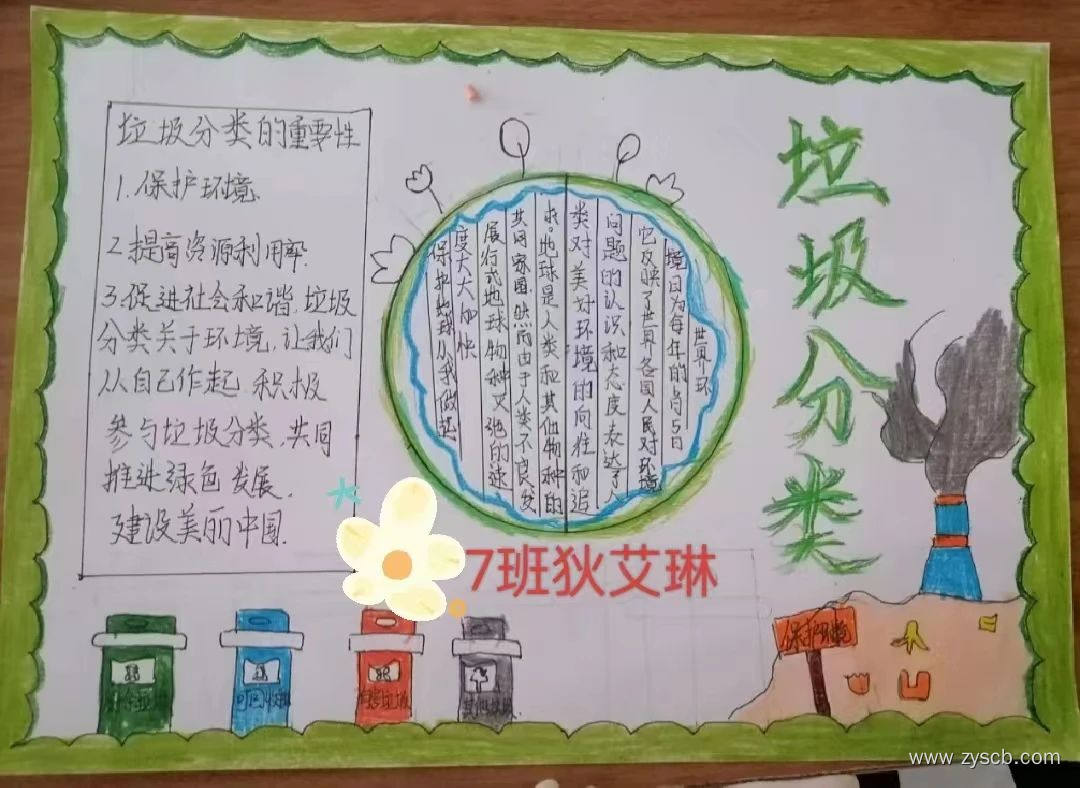 垃圾分类的重要性
1.保护环境
2.提高资源利用率.
3.促进社会和谐,垃圾
分类关于环境,让我们
从自己作起,积极
参与垃圾分类,共同
推进绿色发展.
建设美丽中国.
世界环
境日为每年的6月5日
它反映了世界各国人民对环境
问题的认识和态度表达了人
类对美对环境的向往和追
求。地球是人类和其他物种的
共同家园,然而由于人类不良发
展行式地球物种灭绝的速
度大大加快
保护地球从我做起
垃圾分类
7班狄艾琳
保护环境
可回收物
有害垃圾
其他垃圾
www.zyscb.com